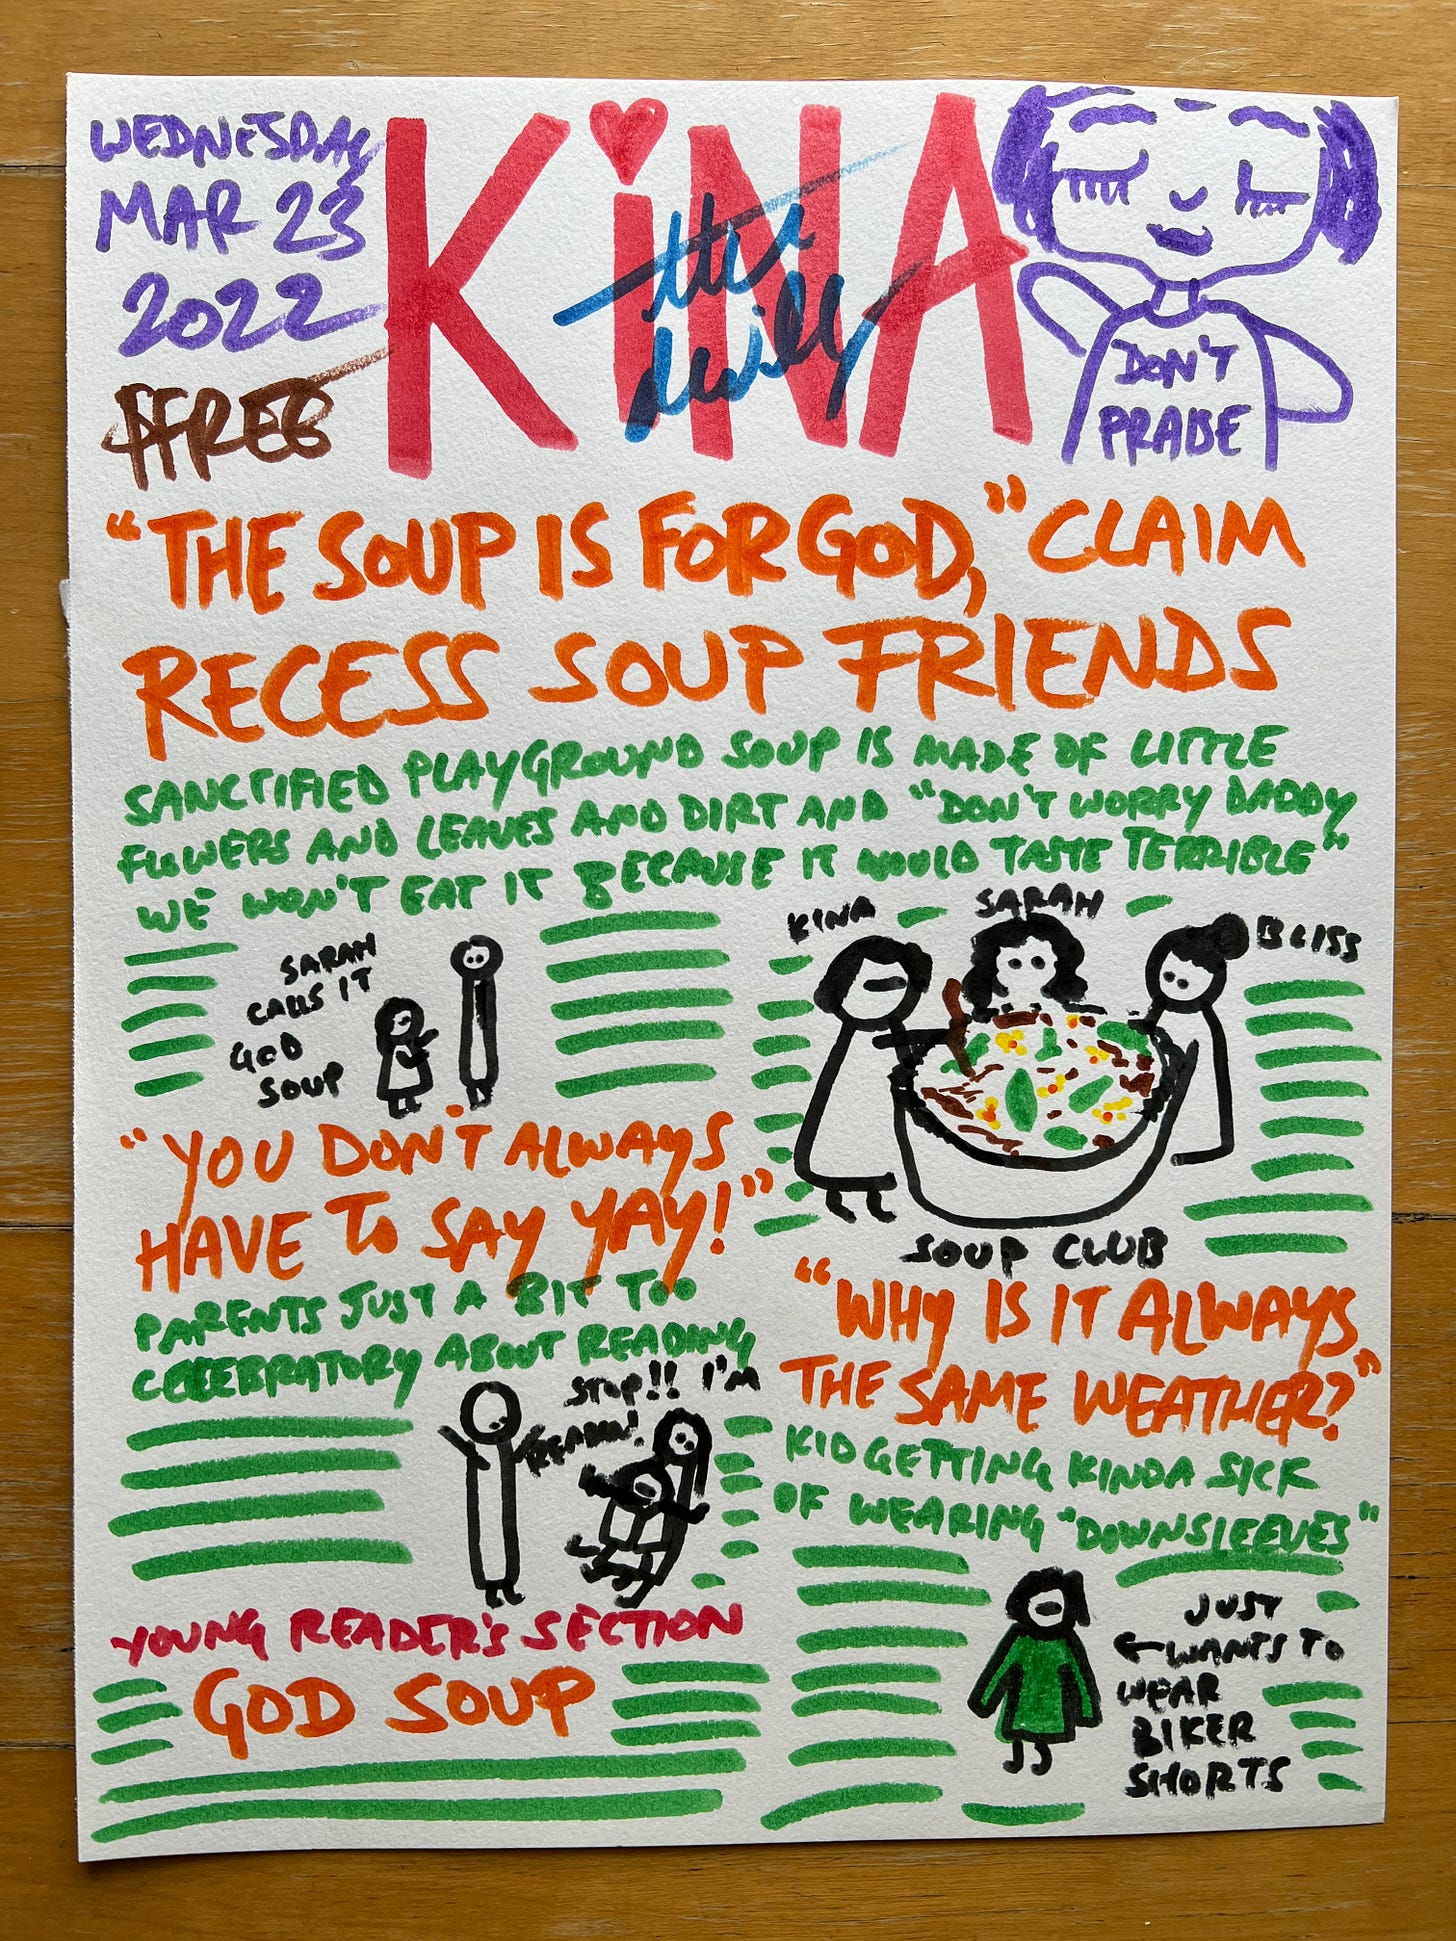 WEDNESDAY
MAR 23
2022
$FREE
KiNA
the daily
DON'T
PRAISE
"THE SOUP IS FOR GOD," CLAIM
RECESS SOUP FRIENDS
SANCTIFIED PLAYGROUND SOUP IS MADE OF LITTLE
FLOWERS AND LEAVES AND DIRT AND "DON'T WORRY DADDY
WE WON'T EAT IT BECAUSE IT WOULD TASTE TERRIBLE"
SARAH
CALLS IT
GOD
SOUP
KINA
SARAH
BLISS
SOUP CLUB
"YOU DON'T ALWAYS
HAVE TO SAY YAY!"
PARENTS JUST A BIT TOO
CELEBRATORY ABOUT READING
STOP!! I'M
READIN!
YOUNG READER'S SECTION
GOD SOUP
"WHY IS IT ALWAYS
THE SAME WEATHER?"
KID GETTING KINDA SICK
OF WEARING "DOWNSLEEVES"
JUST
WANTS TO
WEAR
BIKER
SHORTS